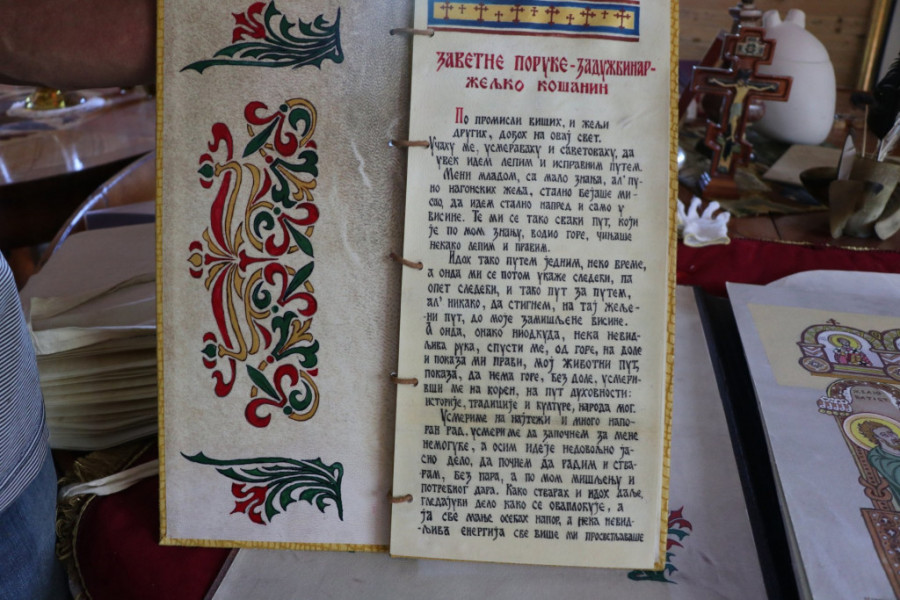 ЗАВЕТНЕ ПОРУКЕ-ЗАДУЖБИНАР-
ЖЕЉКО КОШАНИН
По промисли виших, и жељи
других, дођох на овај свет.
Учаху ме, усмераваху и саветоваху, да
увек идем лепим и исправним путем.
Мени младом, са мало знања, ал' пу-
но нагонских жеља, стално бејаше ми-
сао, да идем стално напред и само у
висине. Те ми се тако сваки пут, који
је по мом знању, водио горе, чињаше
некако лепим и правим.
Идох тако путем једним, неко време,
а онда ми се потом укаже следећи, па
опет следећи, и тако пут за путем,
ал' никако, да стигнем, на тај жеље-
ни пут, до моје замишљене висине.
А онда, онако ниодкуда, нека невид-
љива рука, спусти ме, од горе, на доле
и показа ми прави, мој животни пут,
показа, да нема горе, без доле, усмери-
вши ме на корен, на пут духовности:
историје, традиције и културе, народа мог.
Усмерише на најтежи и много напо-
ран рад, усмерише да започнем за мене
немогуће, а осим идеје недовољно ја-
сно дело, да почнем да радим и ства-
рам, без пара, а по мом мишљењу и
потребног дара. Како стварах и идох даље,
гледајући дело како се оваплоћује, а
ја све мање осећах напор, а нека невид-
љивъ енергија све више ми просветљаваше